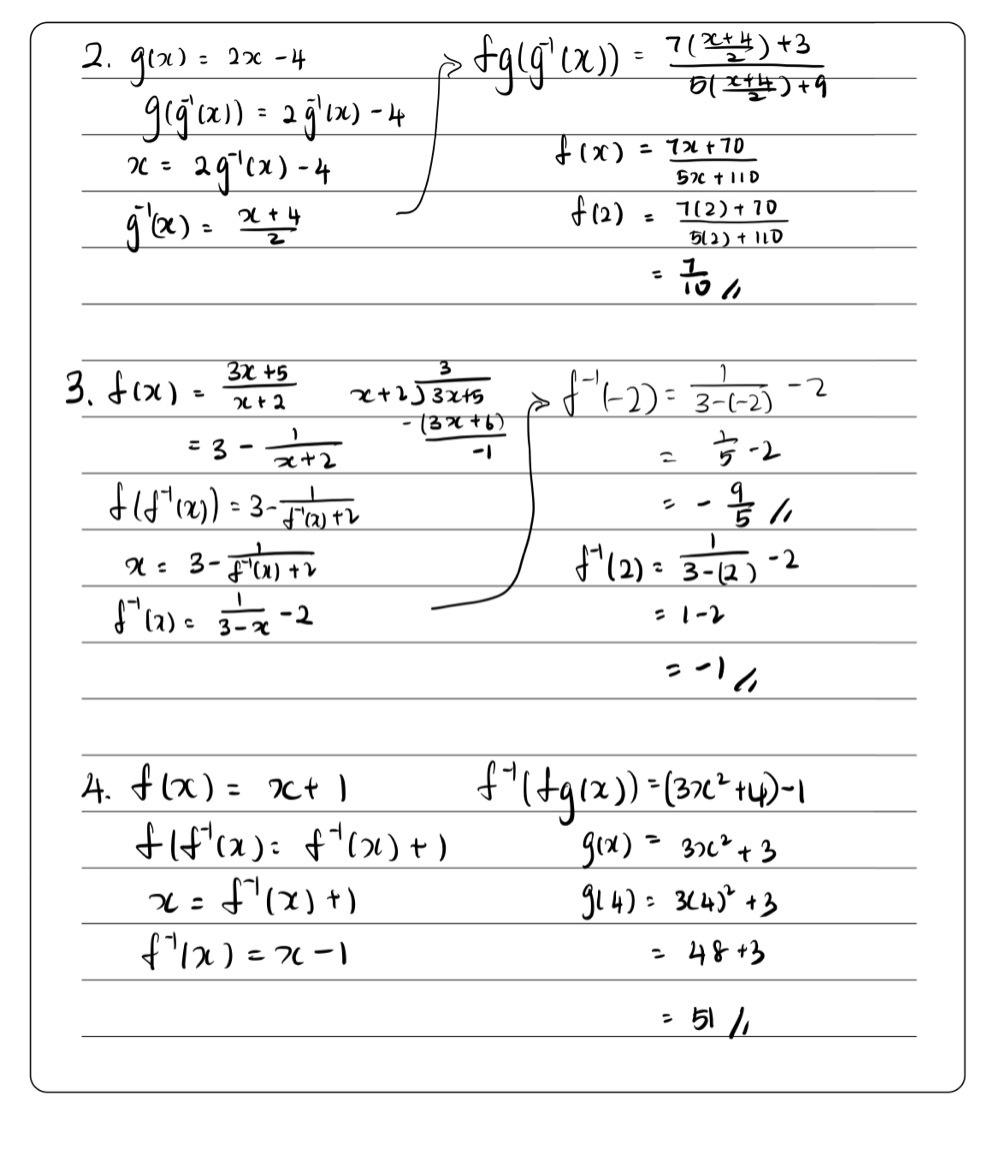 2. g(x) = 2x - 4
g(g⁻¹(x)) = 2g⁻¹(x) - 4
x = 2g⁻¹(x) - 4
g⁻¹(x) = (x + 4)/2
fg(g⁻¹(x)) = (7((x+4)/2) + 3)/(5((x+4)/2) + 9)
f(x) = (7x + 70)/(5x + 110)
f(2) = (7(2) + 70)/(5(2) + 110)
= 7/10 //
3. f(x) = (3x + 5)/(x + 2)
= 3 - 1/(x + 2)
f(f⁻¹(x)) = 3 - 1/(f⁻¹(x) + 2)
x = 3 - 1/(f⁻¹(x) + 2)
f⁻¹(x) = 1/(3 - x) - 2
3
x+2 ) 3x+5
-(3x + 6)
-1
f⁻¹(-2) = 1/(3-(-2)) - 2
= 1/5 - 2
= - 9/5 //
f⁻¹(2) = 1/(3-(2)) - 2
= 1 - 2
= -1 //
4. f(x) = x + 1
f(f⁻¹(x) = f⁻¹(x) + 1
x = f⁻¹(x) + 1
f⁻¹(x) = x - 1
f⁻¹(fg(x)) = (3x² + 4) - 1
g(x) = 3x² + 3
g(4) = 3(4)² + 3
= 48 + 3
= 51 //